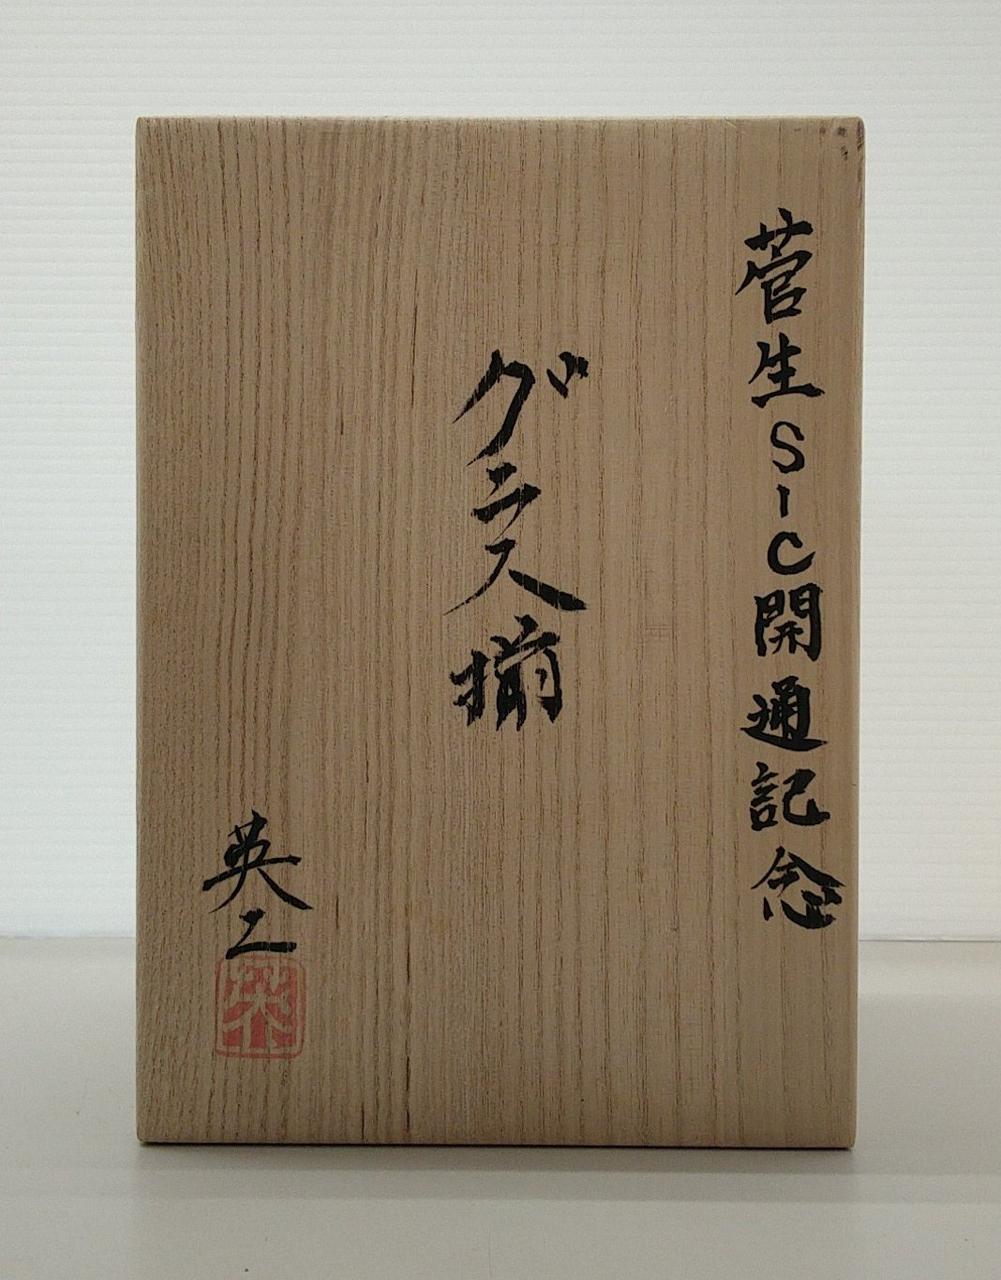 菅生SIC開通記念
グラス揃
英二